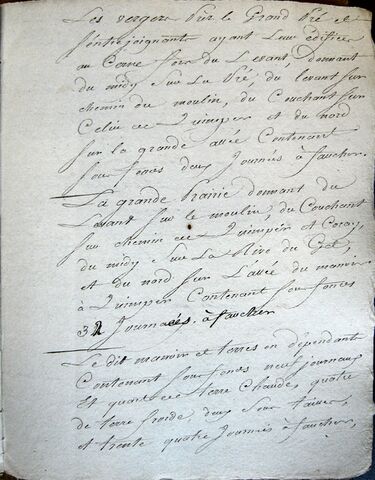 Les vergers sur le Grand Pré et
s'entrejoignants ayant Leur édifices
au Cerne fors du Levant, donnant
du midy sur Le Pré, du levant sur
chemin du moulin, du Couchant sur
Celui de Quimper et du nord
sur la grande allée Contenant
sous fonces deux Journées à faucher.
La grande Prairie donnant du
Levant sur le moulin, du Couchant
sur chemin de Quimper et Coray,
du midy sur La Rive du Get,
et du nord sur L'allée du manoir
à Quimper Contenant sous fonces
32 Journées à faucher
Le dit manoir et terres en dépendante
Contenant sous fonds neuf journaux
et quart de terre Chaude, quatre
de terre froide deux sous
et trente quatre Journées à faucher,